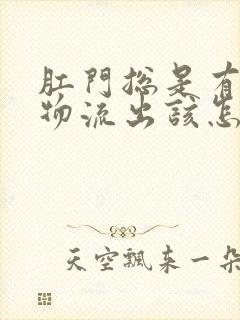 肛門總是有
物流出該怎
天空飄来一朵